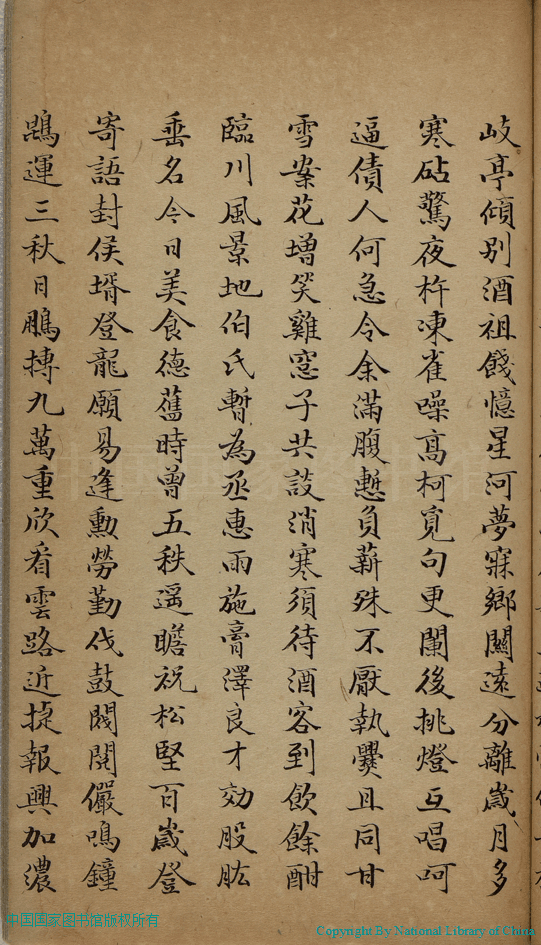 岐亭傾別酒祖餞憶星河夢寐鄉關遠分離歲月多
寒砧驚夜杵凍雀噪高柯覓句更闌後挑燈互唱呵
逼債人何急令余滿腹慙負薪殊不厭執爨且同甘
雪案花增笑雞窓子共談消寒須待酒客到飲餘酣
臨川風景地伯氏暫為丞惠雨施膏澤良才効股肱
垂名今日美食德舊時曾五秩遥瞻祝松堅百歲登
寄語封侯壻登龍願易逢勳勞勤伐鼓閥閱儼鳴鐘
鵾運三秋日鵬摶九萬重欣看雲路近捷報興加濃
中国国家图书馆版权所有
Copyright By National Library of China